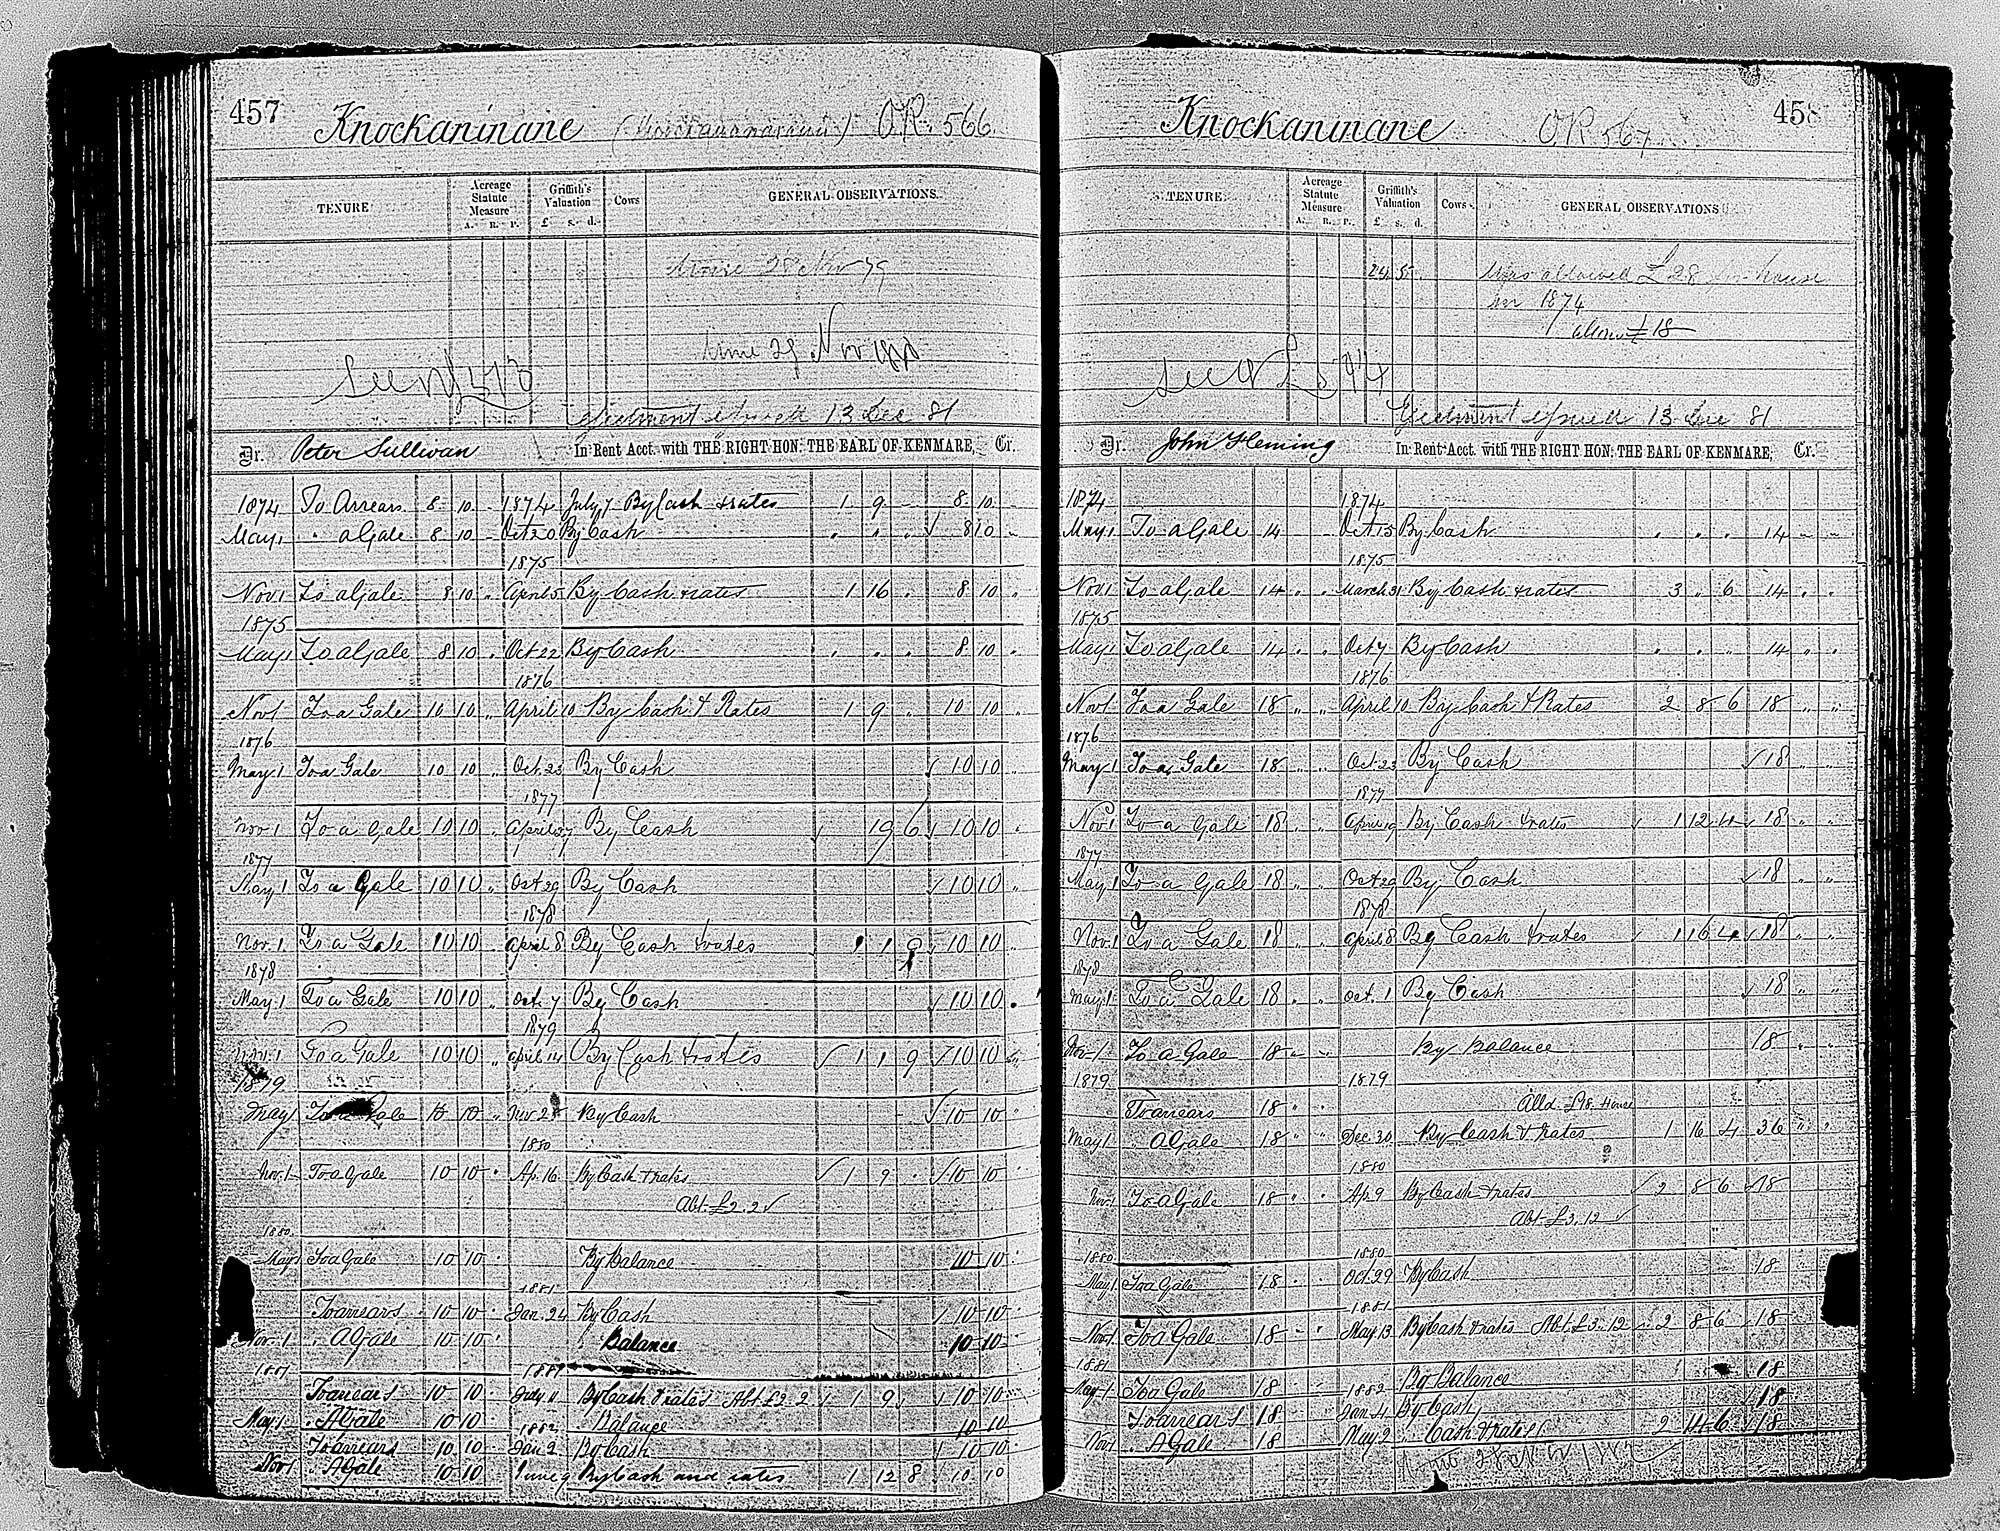 457
Knockaninane OR. 566.
TENURE
Acreage Statute Measure
A. R. P.
Griffith's Valuation
£ s. d.
Cows
GENERAL OBSERVATIONS.
28 Nov 79
29 Nov
See
Ejectment issued 13 Dec 81
Dr. Peter Sullivan In Rent Acct. with THE RIGHT HON. THE EARL OF KENMARE, Cr.
1874 To Arrears 8 10 1874 July 7 By Cash & rates 1 9 - 8 10
May 1 " a Gale 8 10 - Oct 20 By Cash " " " 8 10 -
1875
Nov. 1 To a Gale 8 10 " April 5 By Cash & rates 1 16 " 8 10 "
1875
May 1 To a Gale 8 10 " Oct 22 By Cash " " " 8 10 "
1876
Nov 1 To a Gale 10 10 " April 10 By Cash & Rates 1 9 " 10 10 "
1876
May 1 To a Gale 10 10 " Oct. 23 By Cash 10 10 "
1877
Nov 1 To a Gale 10 10 " April By Cash 19 6 10 10 "
1877
May 1 To a Gale 10 10 " Oct 29 By Cash 10 10 "
1878
Nov. 1 To a Gale 10 10 " April 8 By Cash & rates 1 1 9 10 10 "
1878
May 1 To a Gale 10 10 " Oct. 7 By Cash 10 10
1879
Nov. 1 To a Gale 10 10 " April 14 By Cash & rates 1 1 9 10 10
1879
May 1 To a Gale 10 10 " Nov 28 By Cash 10 10 "
1880
Nov. 1 To a Gale 10 10 " Ap. 16 By Cash & rates 1 9 " 10 10
Abt £2.2
1880
May 1 To a Gale 10 10 By Balance 10 10
1881
To arrears 10 10 Jan. 24 By Cash 10 10
Nov. 1 " A Gale 10 10 " Balance 10 10
1881 1881
To arrears 10 10 July 11 By Cash & rates Abt £2.2 1 9 10 10
May 1 " A Gale 10 10 Balance 10 10
1882
To arrears 10 10 Jan 2 By Cash 10 10
Nov 1 " A Gale 10 10 June 9 By Cash and rates 1 12 8 10 10
458
Knockaninane OR 567
TENURE
Acreage Statute Measure
A. R. P.
Griffith's Valuation
£ s. d.
Cows
GENERAL OBSERVATIONS
24 5 Was allowed £28 for house
in 1874
£18
See
Ejectment issued 13 Dec 81
Dr. John Fleming In Rent Acct. with THE RIGHT HON. THE EARL OF KENMARE, Cr.
1874 1874
May 1 To a Gale 14 - - Oct 15 By Cash " " " 14 " "
1875
Nov. 1 To a Gale 14 " " March 31 By Cash & rates 3 " 6 14 " "
1875
May 1 To a Gale 14 " " Oct 7 By Cash " " " 14 " "
1876
Nov 1 To a Gale 18 " " April 10 By Cash & Rates 2 8 6 18 " "
1876
May 1 To a Gale 18 " " Oct 23 By Cash 18 " "
1877
Nov 1 To a Gale 18 " " April 19 By Cash & rates 1 12 4 18 " "
1877
May 1 To a Gale 18 " " Oct 29 By Cash 18 " "
1878
Nov. 1 To a Gale 18 " " April 8 By Cash & rates 1 16 4 18 " "
1878
May 1 To a Gale 18 " " Oct. 1 By Cash 18 " "
Nov. 1 To a Gale 18 " " By Balance 18 " "
1879 1879
To arrears 18 " " Alld. £18 House
May 1 " A Gale 18 " " Dec. 30 By Cash & rates 1 16 4 36 " "
1880
Nov 1 To a Gale 18 " " Ap 9 By Cash & rates 2 8 6 18
Abt £3.12
1880 1880
May 1 To a Gale 18 Oct. 29 By Cash 18
1881
Nov 1 To a Gale 18 May 13 By Cash & rates Abt £3.12 2 8 6 18
1881
May 1 To a Gale 18 1882 By Balance 18
To arrears 18 Jan 4 By Cash 18
Nov 1 " A Gale 18 May 2 " Cash & rates 2 14 6 18